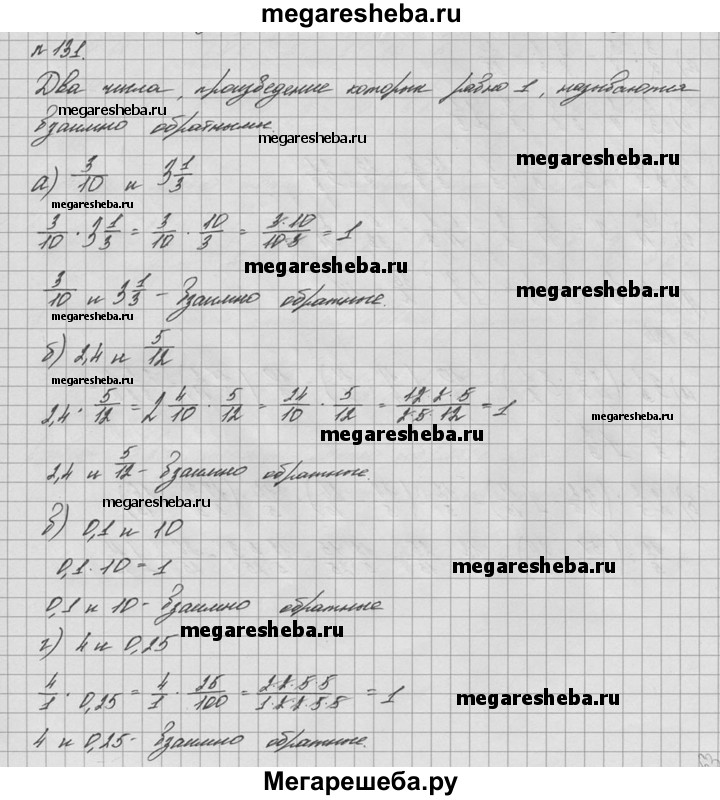 megaresheba.ru
№131.
Два числа, произведение которых равно 1, называются
megaresheba.ru
взаимно обратными.
megaresheba.ru
megaresheba.ru
а) 3/10 и 3 1/3
3/10 · 3 1/3 = 3/10 · 10/3 = 3·10/10·3 = 1
megaresheba.ru
3/10 и 3 1/3 - взаимно обратные.
megaresheba.ru
megaresheba.ru
б) 2,4 и 5/12
megaresheba.ru
2,4 · 5/12 = 2 4/10 · 5/12 = 24/10 · 5/12 = 12·2·5/2·5·12 = 1
megaresheba.ru
megaresheba.ru
2,4 и 5/12 - взаимно обратные.
megaresheba.ru
в) 0,1 и 10
0,1 · 10 = 1
megaresheba.ru
0,1 и 10 - взаимно обратные
megaresheba.ru
г) 4 и 0,25
4/1 · 0,25 = 4/1 · 25/100 = 2·2·5·5/1·2·2·5·5 = 1
megaresheba.ru
4 и 0,25 - взаимно обратные.
Мегарешеба.ру